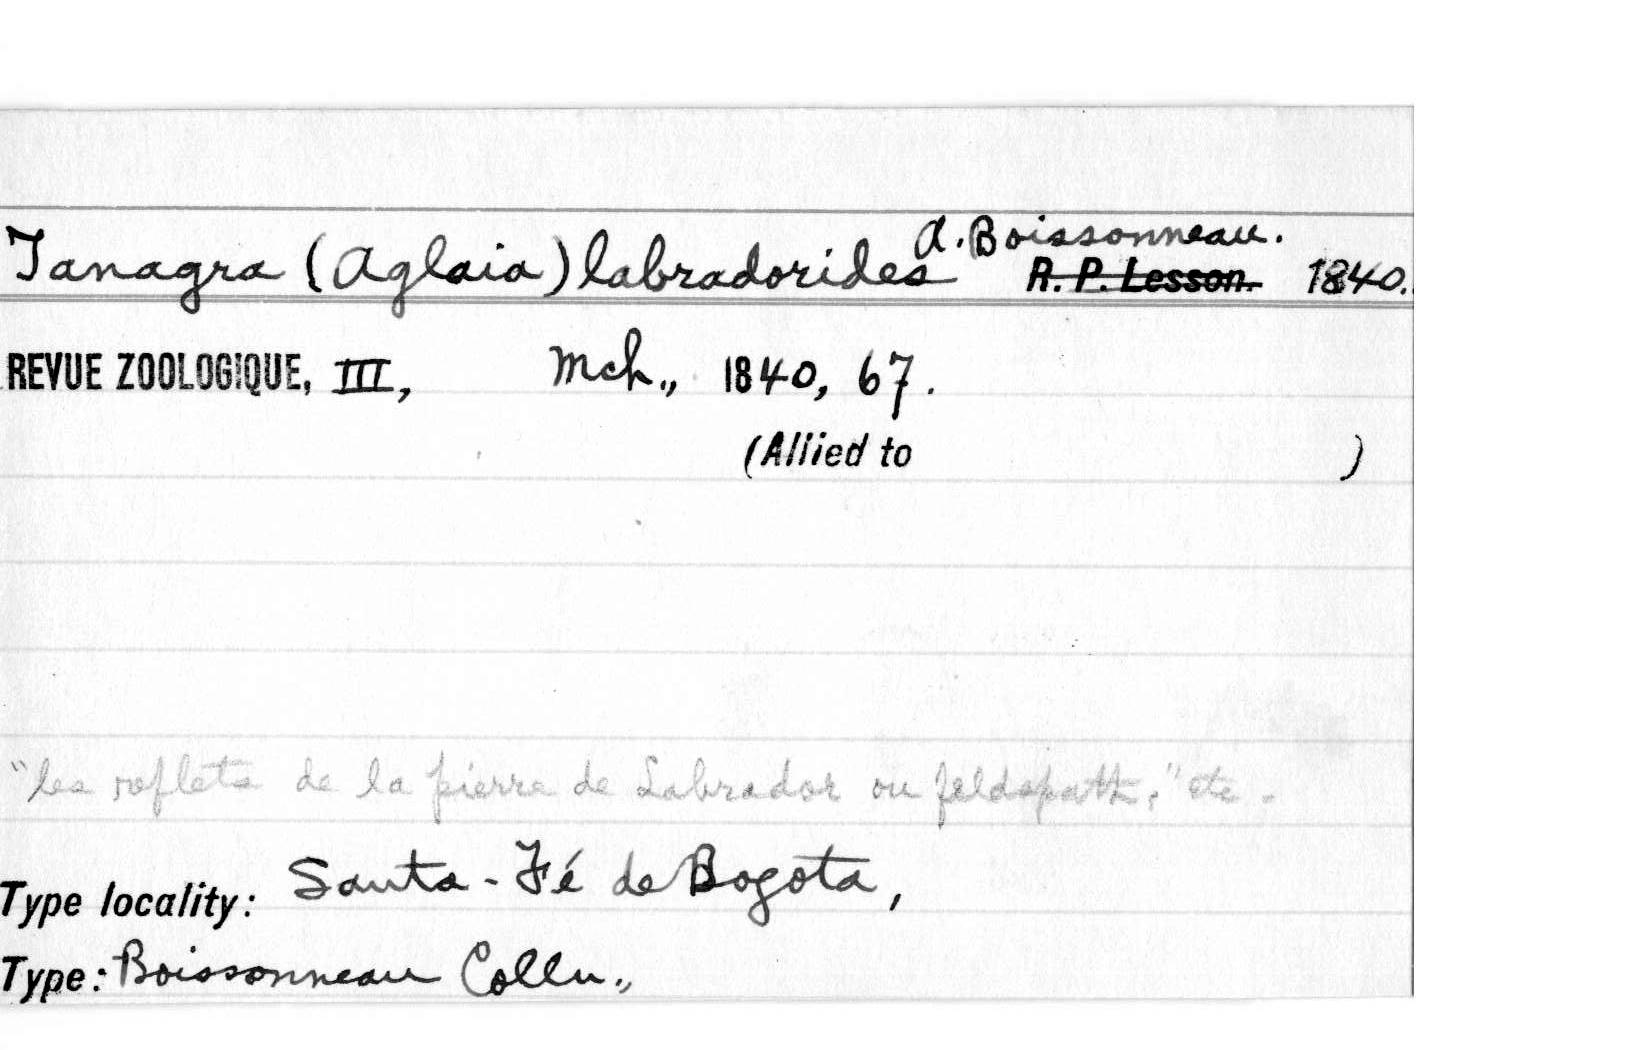 Tanagra (Aglaia) labradorides A. Boissonneau.
R. P. Lesson. 1840.
REVUE ZOOLOGIQUE, III, Mch., 1840, 67.
(Allied to )
"les reflets de la pierre de Labrador ou feldspath," etc.
Type locality: Santa-Fé de Bogota,
Type: Boissonneau Colln.,